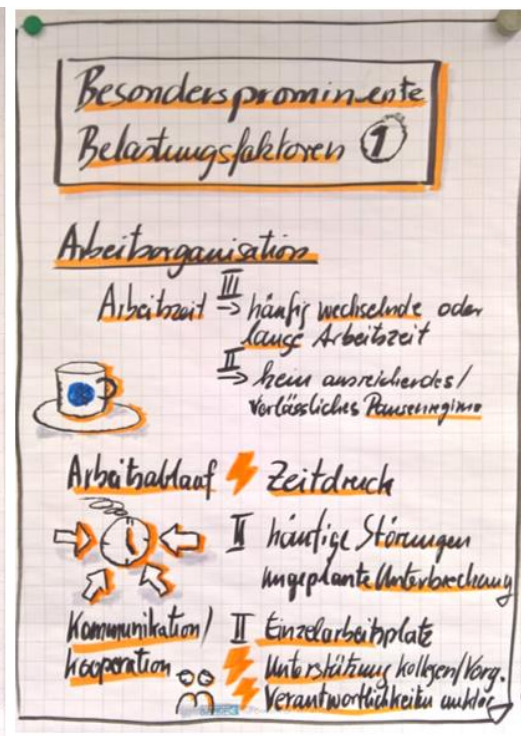 Besonders prominente
Belastungsfaktoren 1
Arbeitsorganisation
Arbeitszeit III → häufig wechselnde oder
lange Arbeitszeit
II → kein ausreichendes/
verlässliches Pausenregime
Arbeitsablauf Zeitdruck
II häufige Störungen
ungeplante Unterbrechung
Kommunikation/ II Einzelarbeitsplatz
Kooperation Unterstützung Kollegen/Vorg.
Verantwortlichkeiten unklar